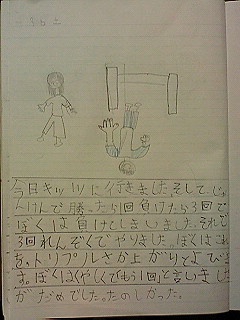 今日キッズに行きました。そして、じゃ
んけんで勝ったら1回負けたら3回で
ぼくは負けてしまいました。それで
3回れんぞくでやりました。ぼくはこれ
を、トリプルさか上がりとよびま
す。ぼくはくやしくてもう1回と言いました
がだめでした。たのしかった。